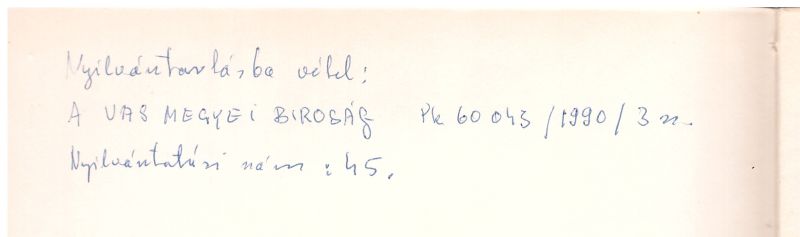 Nyilvántartásba vétel:
A VAS MEGYEI BIROSÁG Pk 60 043/1990/3 sz.
Nyilvántartási szám: 45.